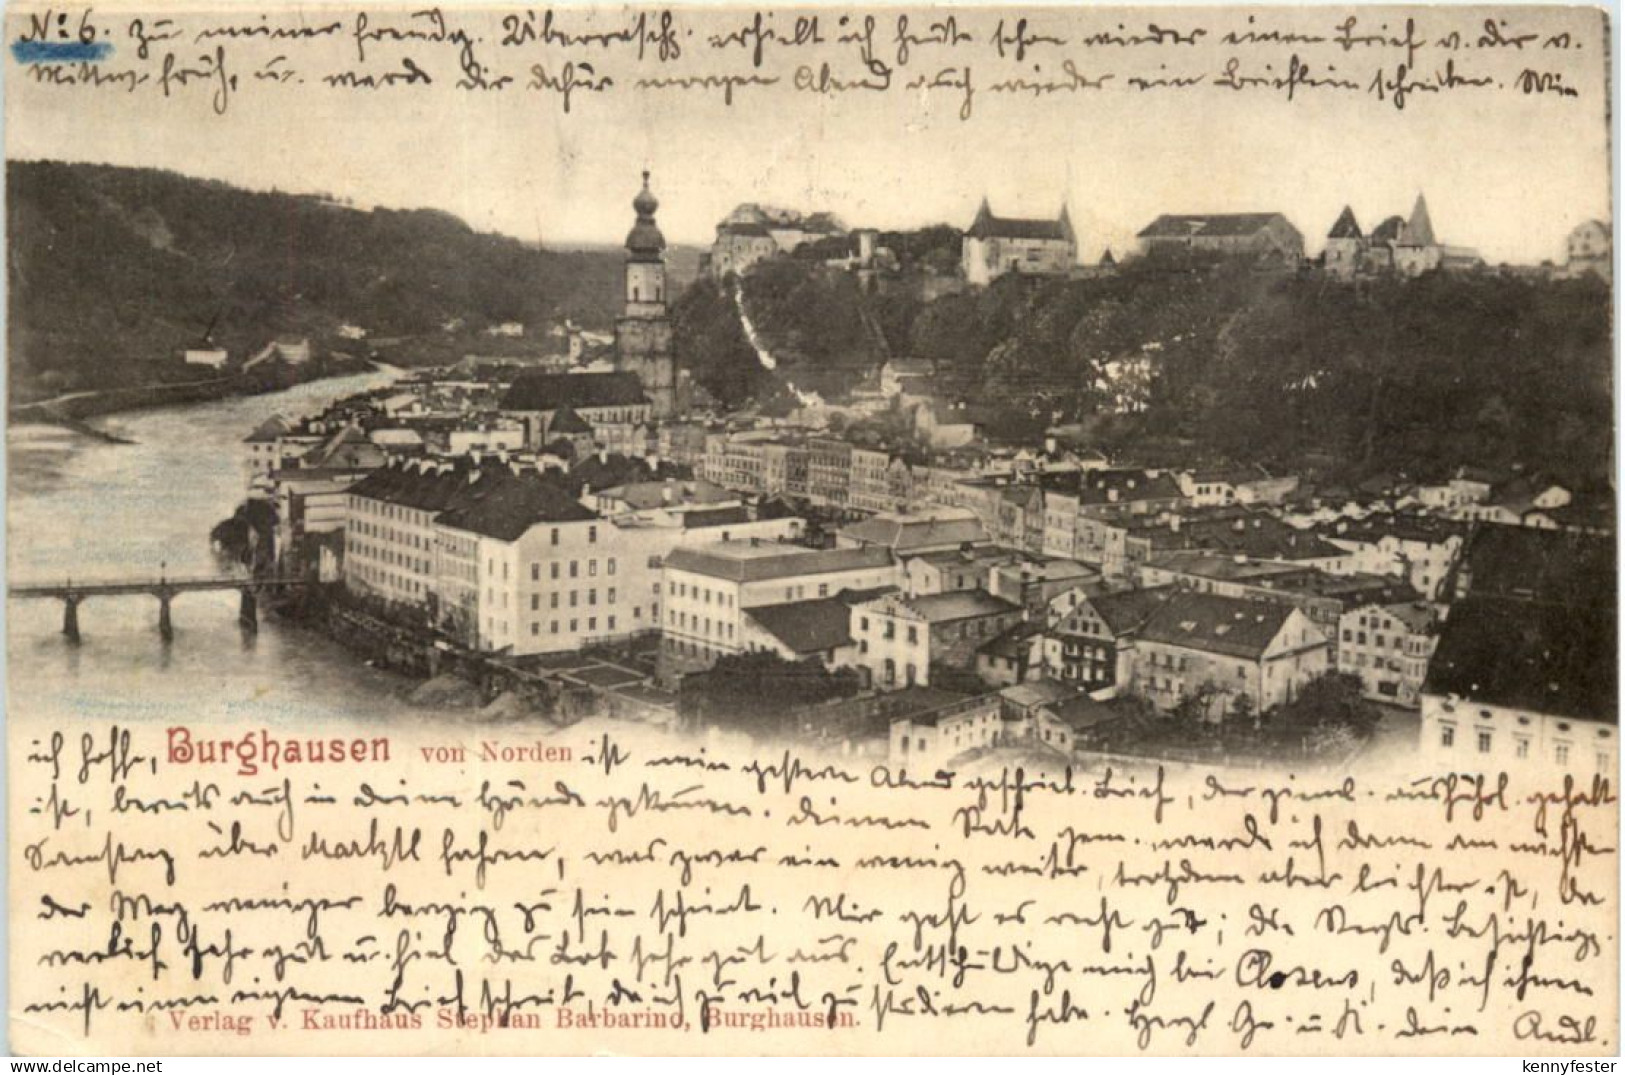 No 6. Zu meiner freudg. Überraschg. erhielt ich heute schon wieder einen Brief v. dir v.
Mittw. früh, u. werde dir dafür morgen Abend auch wieder ein Brieflein schreiben. Wie
ich hoffe, Burghausen von Norden ist mein gestern Abend geschrieb. Brief, der zieml. ausführl. gehalt.
ist, bereits auch in deine Hände gekommen. deinem Rate gem. werde ich dann am nächsten
Samstag über Marktl fahren, was zwar ein wenig weiter, trotzdem aber leichter ist, da
der Weg weniger bergig zu sein scheint. Mir geht es recht gut; die Besichtigg.
verlief sehr gut u. fiel das Lob sehr gut aus. Entschuldige mich bei, daß ich ihnen
nicht einen eigenen Brief schreib, da ich zu viel zu studieren habe. Herzl. Gr. u. K. dein Andl.
Verlag v. Kaufhaus Stephan Barbarino, Burghausen.
kennyfester